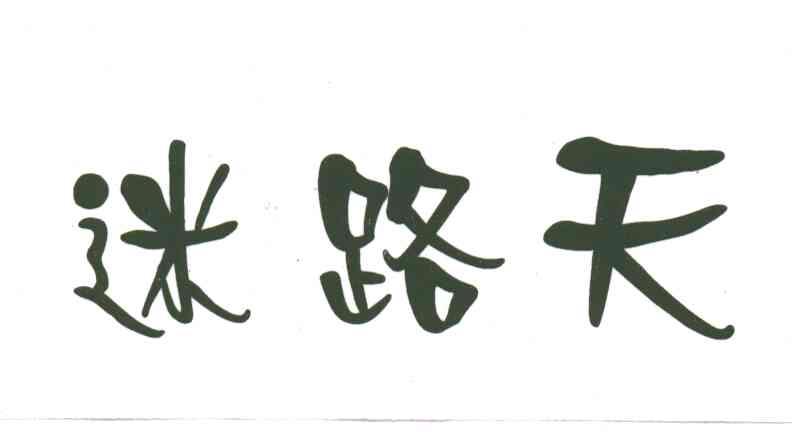 迷路天